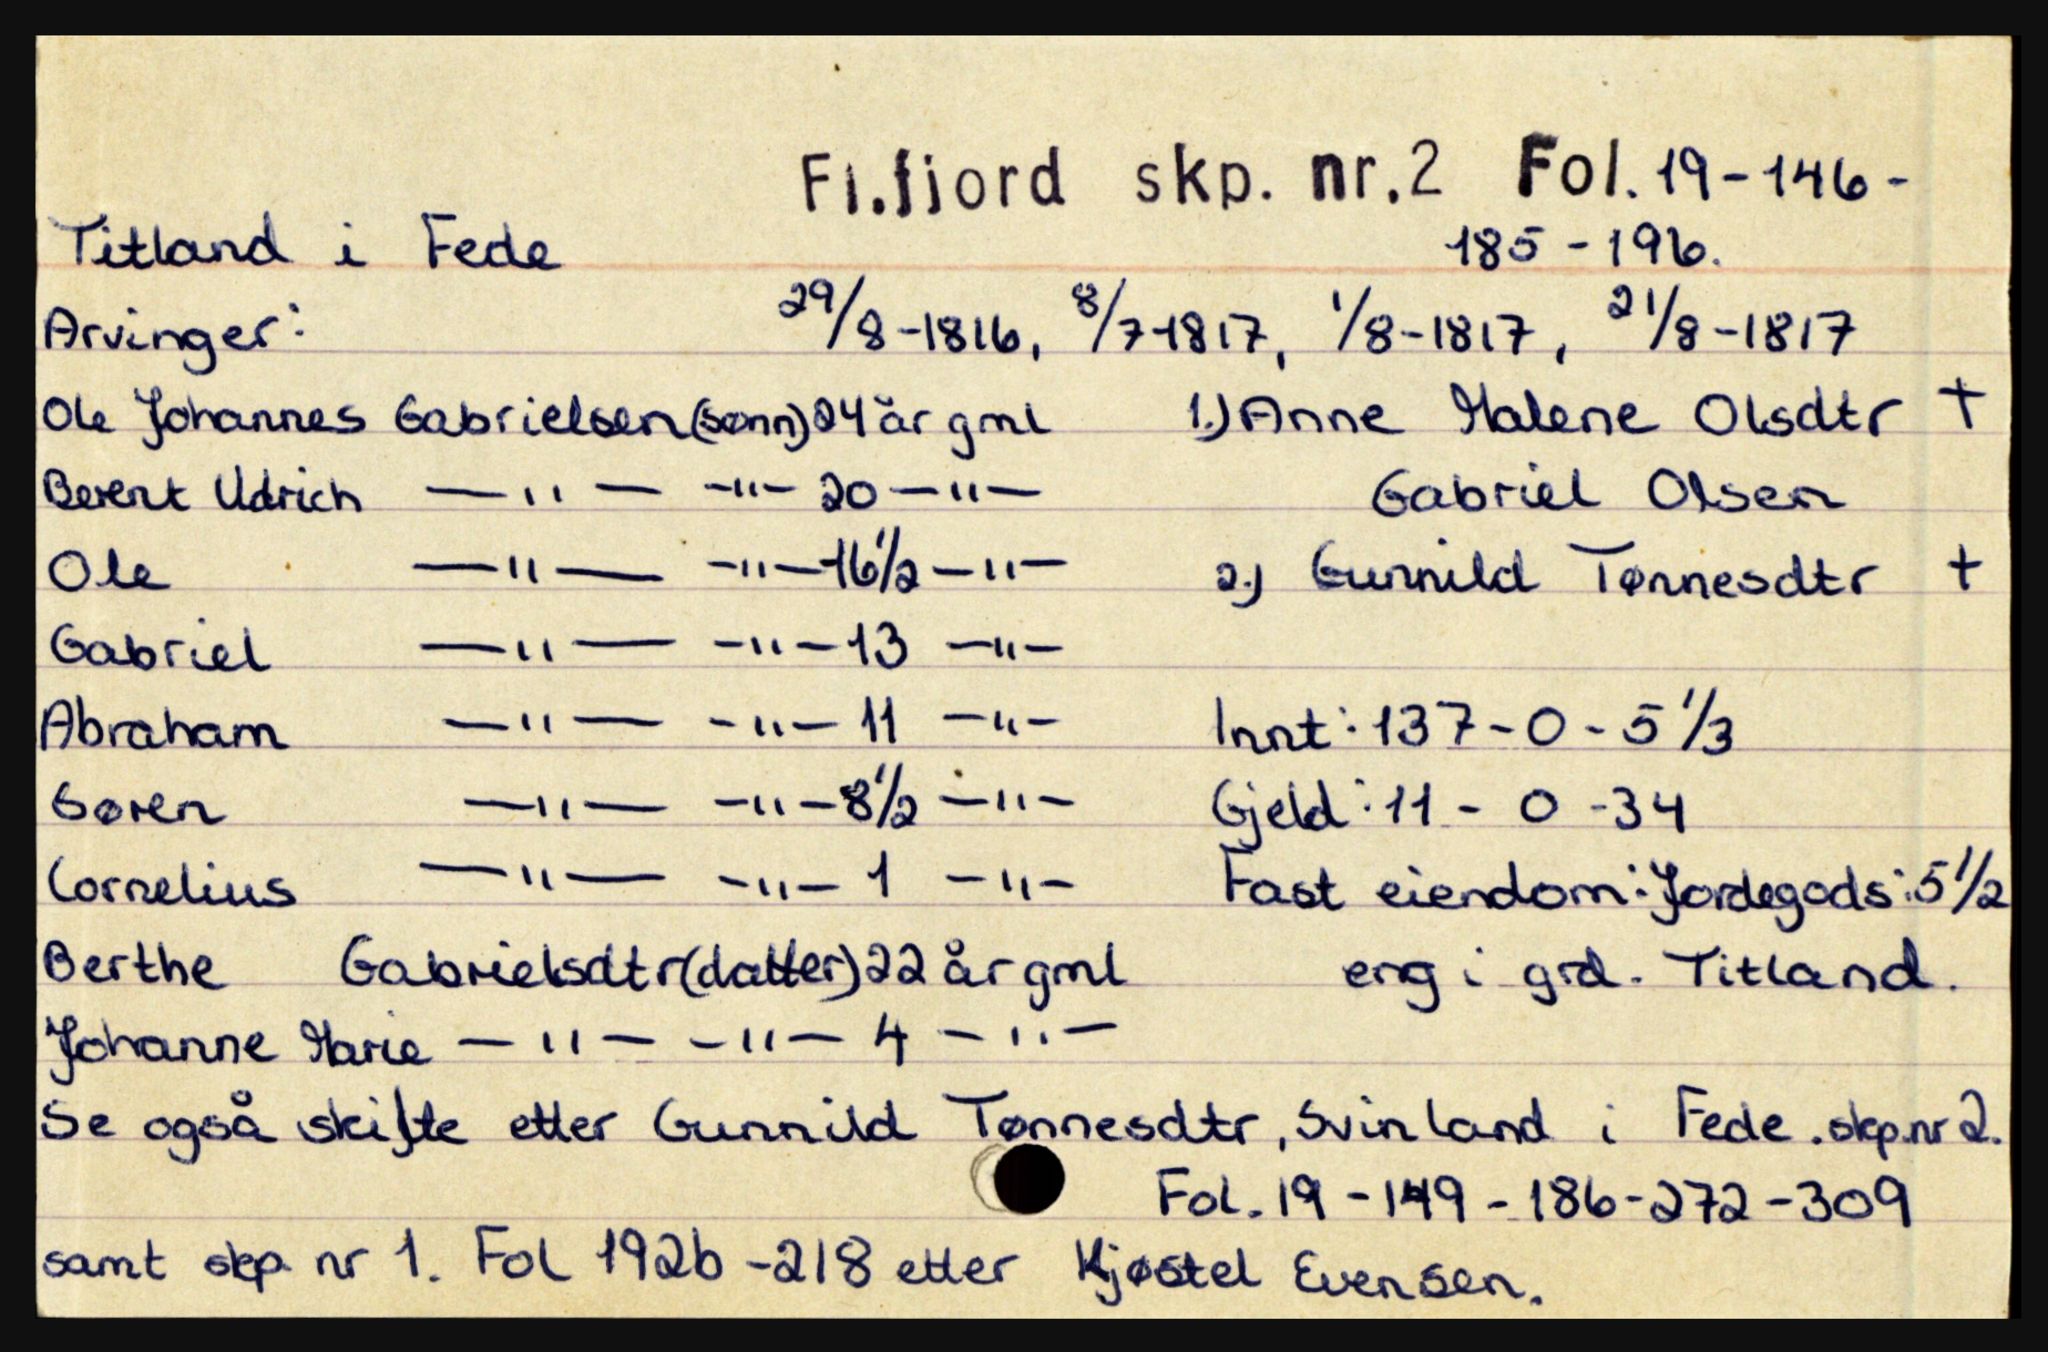 Fl.fjord skp. nr.2 Fol. 19-146-
Titland i Fede 185-196.
Arvinger: 29/8-1816, 8/7-1817, 1/8-1817, 21/8-1817
Ole Johannes Gabrielsen(sønn)24 år gml 1.) Anne Malene Olsdtr +
Berent Udrich —"— -"- 20 —"— Gabriel Olsen
Ole —"— -"— 16 1/2 —"— 2.) Gunnild Tønnesdtr +
Gabriel —"— -"— 13 —"—
Abraham —"— -"— 11 —"— Innt: 137-0-5 1/3
Søren —"— -"— 8 1/2 —"— Gjeld: 11 - 0 -34
Cornelius —"— -"— 1 —"— Fast eiendom: Jordegods: 5 1/2
Berthe Gabrielsdtr(datter)22 år gml eng i grd. Titland.
Johanne Marie —"— -"— 4 —"—
Se også skifte etter Gunnild Tønnesdtr, Svinland i Fede. skp.nr 2.
Fol. 19-149-186-272-309
samt skp. nr 1. Fol 192b-218 etter Kjøstel Evensen.